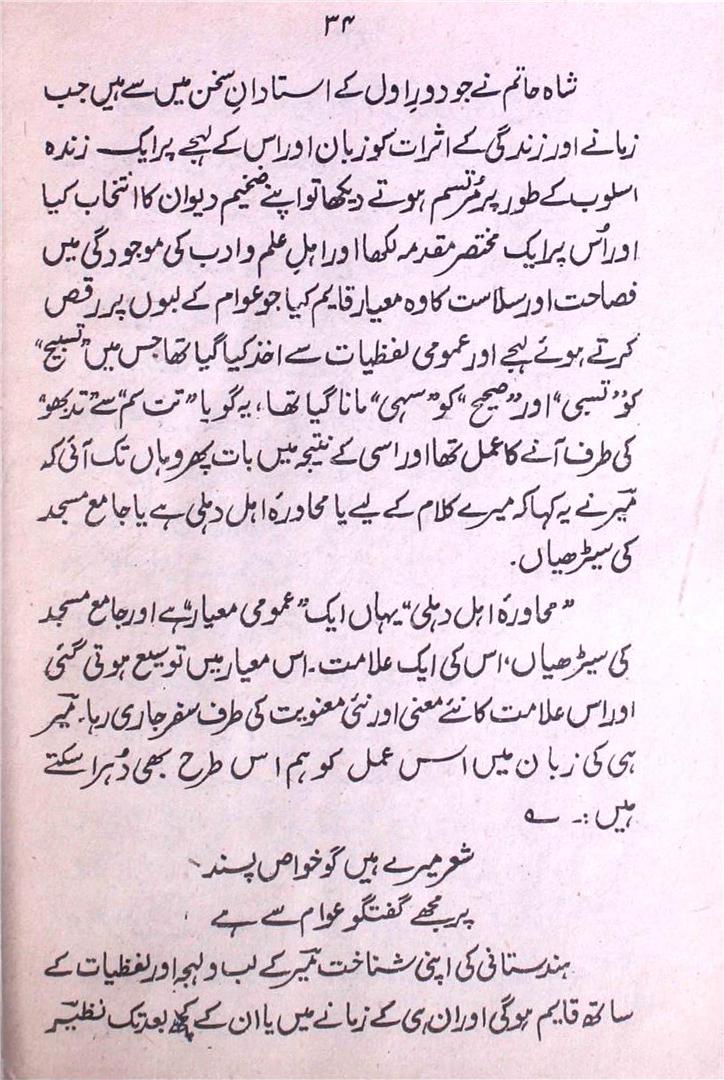 ۳۴
شاہ حاتم نے جو دورِ اول کے استادانِ سخن میں سے ہیں جب
زمانے اور زندگی کے اثرات کو زبان اور اس کے لہجے پر ایک زندہ
اسلوب کے طور پر مُرتسم ہوتے دیکھا تو اپنے ضخیم دیوان کا انتخاب کیا
اور اُس پر ایک مختصر مقدمہ لکھا اور اہلِ علم و ادب کی موجودگی میں
فصاحت اور سلاست کا وہ معیار قایم کیا جو عوام کے لبوں پر رقص
کرتے ہوئے لہجے اور عمومی لفظیات سے اخذ کیا گیا تھا جس میں ”تسبیح“
کو ”تسبی“ اور ”صحیح“ کو ”سہی“ مانا گیا تھا، یہ گویا ”تت کم“ سے ”تدبھو“
کی طرف آنے کا عمل تھا اور اسی کے نتیجہ میں بات پھر وہاں تک آئی کہ
میرؔ نے یہ کہا کہ میرے کلام کے لیے یا محاورۂ اہل دہلی ہے یا جامع مسجد
کی سیڑھیاں.
”محاورۂ اہل دہلی“ یہاں ایک ”عمومی معیار“ ہے اور جامع مسجد
کی سیڑھیاں، اس کی ایک علامت۔ اس معیار میں توسیع ہوتی گئی
اور اس علامت کا نئے معنی اور نئی معنویت کی طرف سفر جاری رہا۔ میرؔ
ہی کی زبان میں اسس عمل کو ہم اس طرح بھی دُہرا سکتے
ہیں :۔ ؎
شعر میرے ہیں گو خواص پسند
پر مجھے گفتگو عوام سے ہے
ہندستانی کی اپنی شناخت میرؔ کے لب و لہجہ اور لفظیات کے
ساتھ قایم ہوگی اور ان ہی کے زمانے میں یا ان کے کچھ بعد تک نظیرؔ